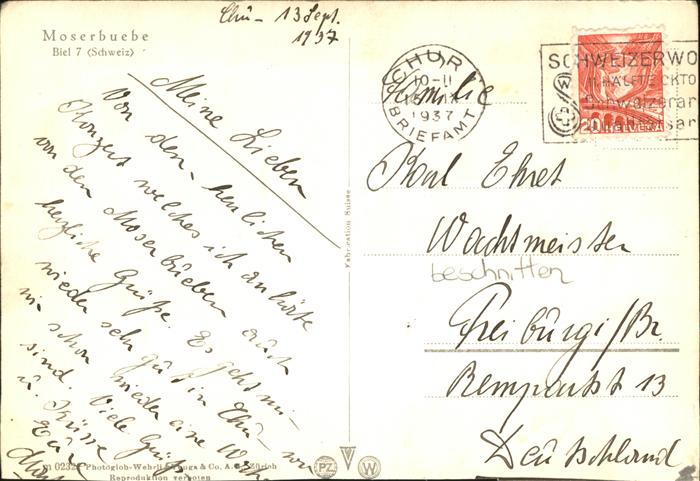 Moserbuebe
Biel 7 (Schweiz)
Chur - 13 Sept.
1937
Meine Lieben
Von dem herrlichen
Konzert welches ich anhörte
von den Moserbueben Euch
herzliche Grüße. Es geht mir
wieder sehr gut in Chur wo
wir schon wieder eine Woche
sind. Viele Grüße
u. Küsse
Eure
CHUR
10-11
1937
BRIEFAMT
SCHWEIZERWO
II. HÄLFTE OKTO
Schweizerar
20 HELVETIA
Familie
Karl Ehret
Wachtmeister
beschnitten
Freiburg i/Br.
Rempartst 13
Deutschland
Fabrication Suisse
Photoglob-Wehrli & Vouga & Co. A.G. Zürich
Reproduktion verboten
PZ
W